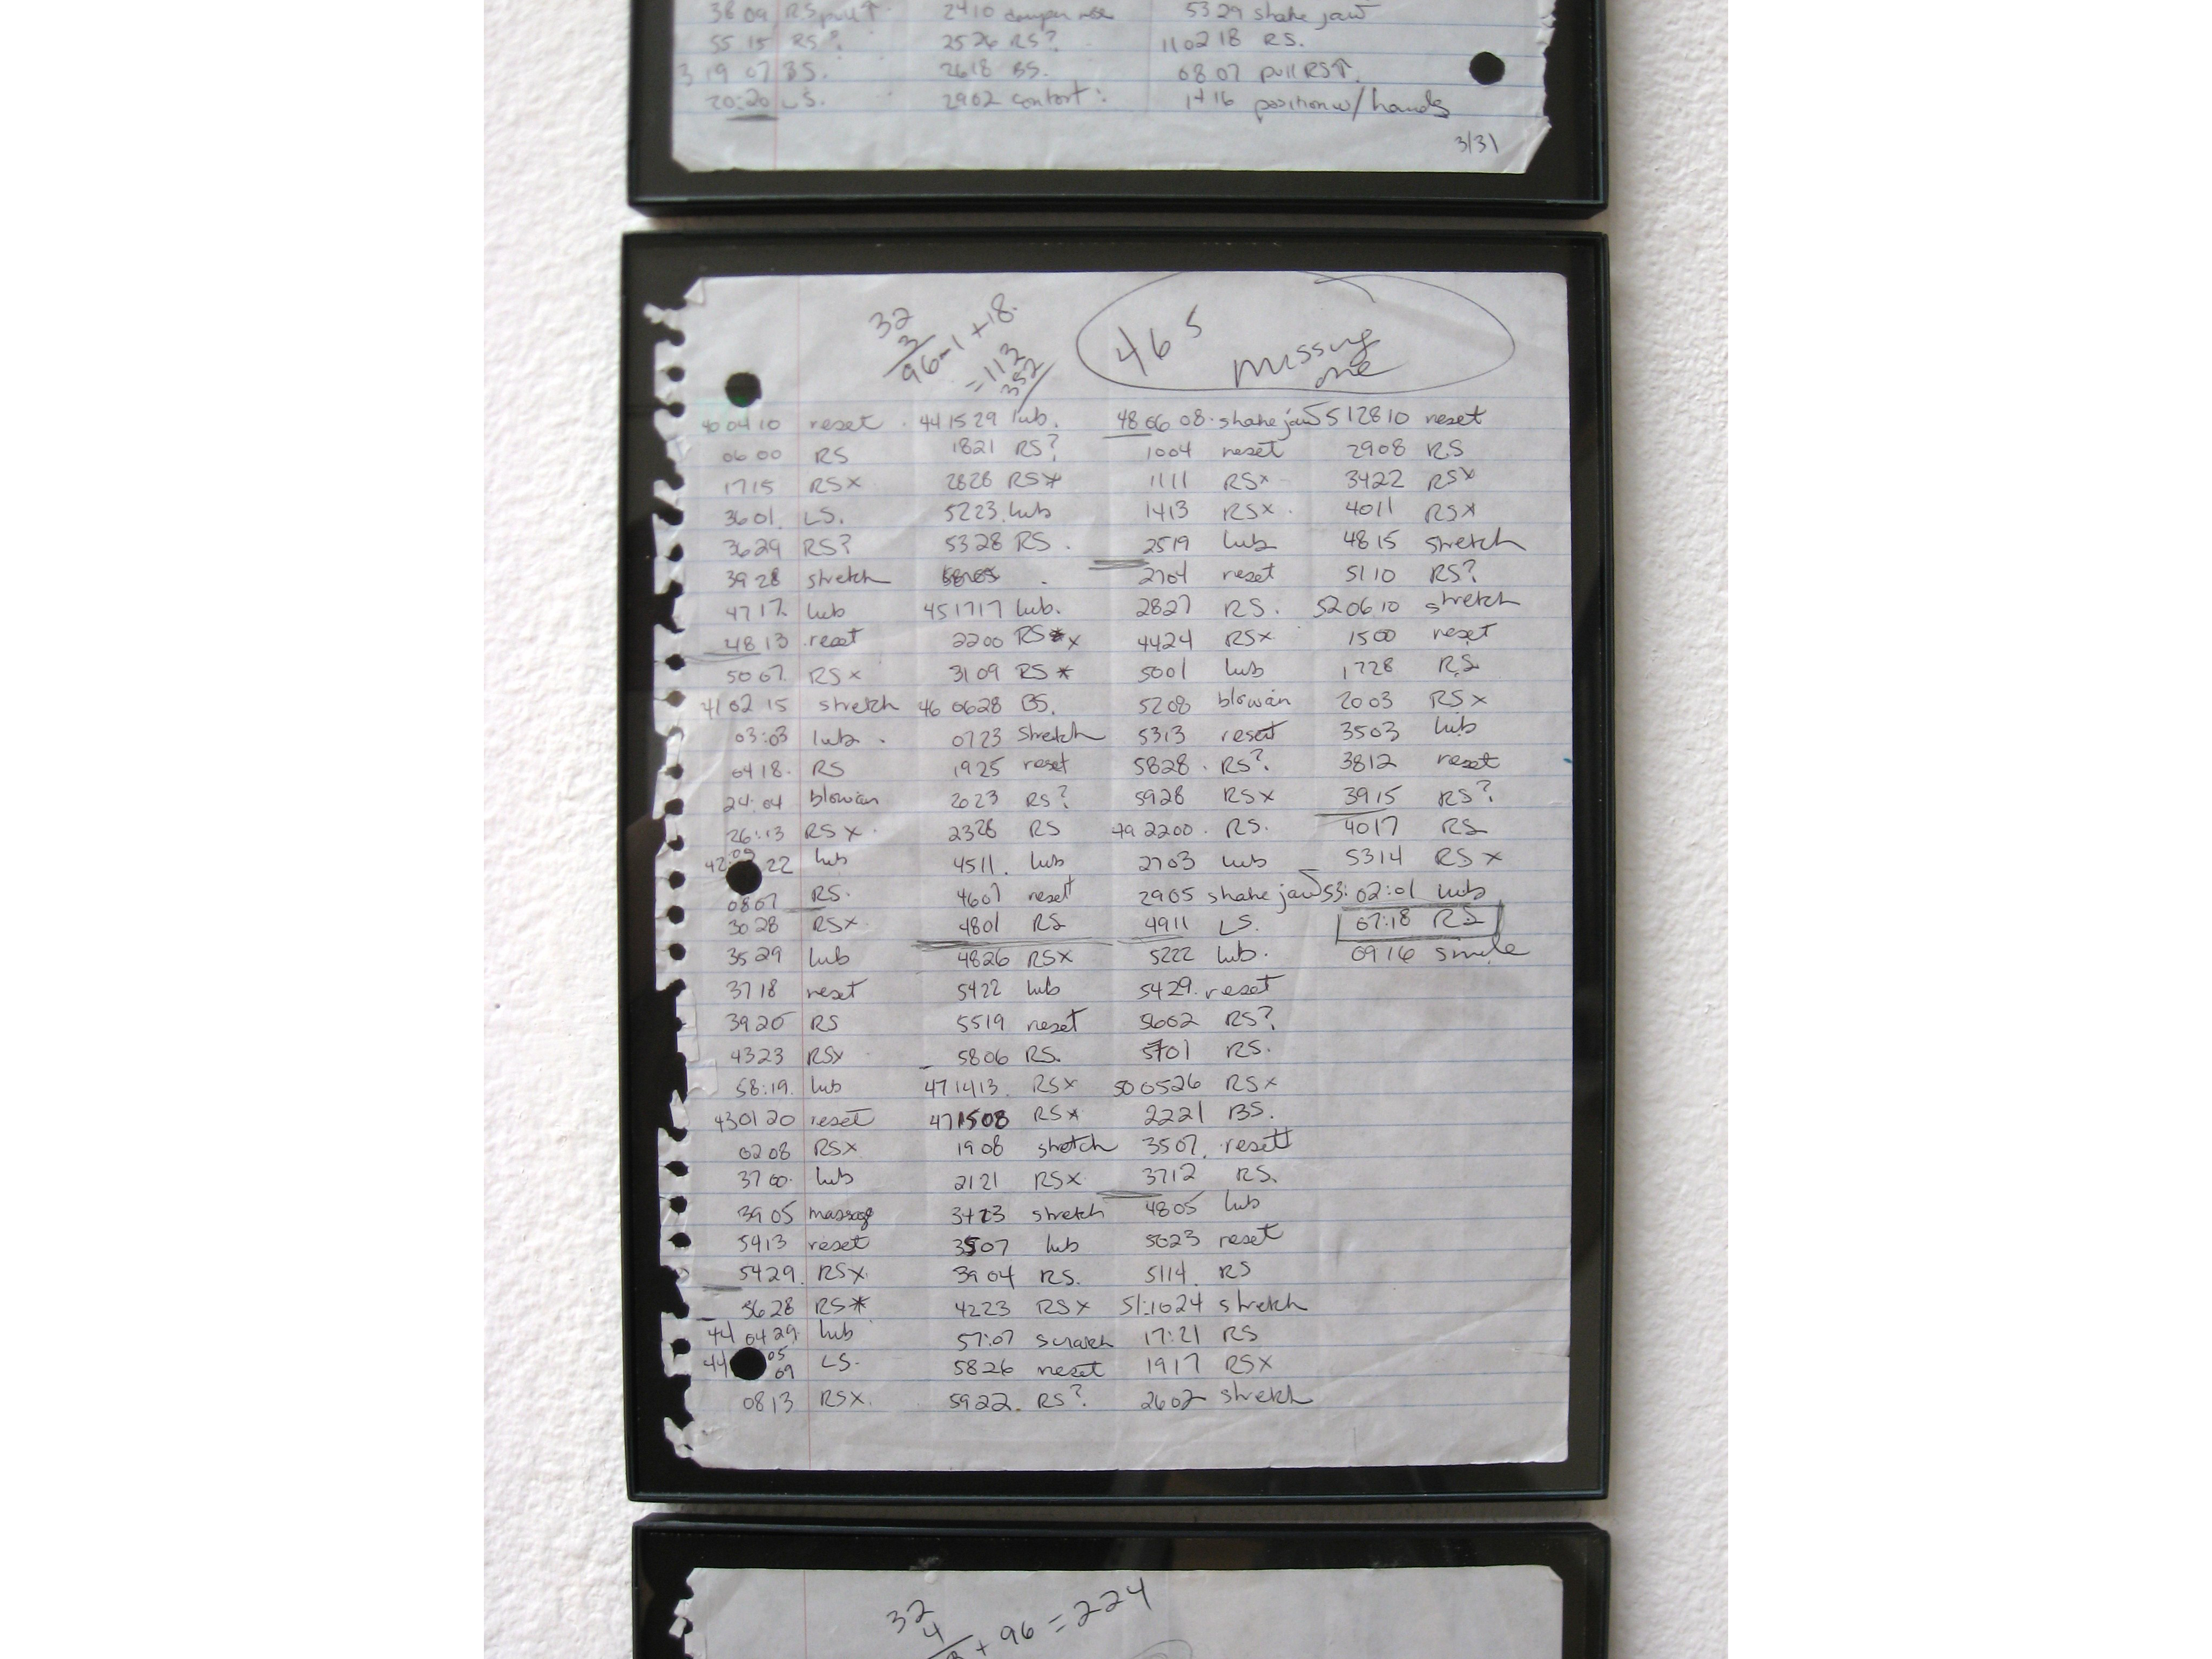 3809 RS pull↑ 2410 damper nose 5329 shake jaw
5515 RS? 2526 RS? 110218 RS.
3 19 07 BS. 2618 BS. 0807 pull RS↑.
20:20 LS. 2902 contort: 1416 position w/ hands
3/31
32
3
96-1+18.
=113
352
465
missing
one
40 04 10 reset . 44 15 29 lub. 48 06 08. shake jaw 51 28 10 reset
06 00 RS 1821 RS? 1004 reset 2908 RS
1715 RSx 2828 RS* 1111 RSx 3422 RSx
3601. LS. 5223. lub 1413 RSx. 4011 RSx
3629 RS? 5328 RS. 2519 lub 4815 stretch
3928 stretch . 2704 reset 5110 RS?
4717 lub 451717 lub. 2827 RS. 520610 stretch
4813 reset 2200 RS*x 4424 RSx 1500 reset
5007. RSx 3109 RS* 5001 lub 1728 RS
41 02 15 stretch 46 0628 BS. 5208 blow in 2003 RSx
03:03 lub. 0723 stretch 5313 reset 3503 lub
0418. RS 1925 reset 5828. RS? 3812 reset
24:04 blow in 2023 RS? 5928 RSx 3915 RS?
26:13 RSx. 2328 RS 49 2200. RS. 4017 RS
42:09 22 lub 4511. lub 2703 lub 5314 RSx
0807 RS. 4607 reset 2905 shake jaw 53:02:01 lub
3028 RSx. 4801 RS 4911 LS. 07:18 RS
3529 lub 4826 RSx 5222 lub. 0916 smile
3718 reset 5422 lub 5429. reset
3920 RS 5519 reset 5602 RS?
4323 RSx 5806 RS. 5701 RS.
58:19. lub 471413. RSx 500526 RSx
430120 reset 471508 RSx 2221 BS.
0208 RSx 1908 stretch 3507. reset
3700. lub 2121 RSx. 3712 RS.
3905 massage 3423 stretch 4805 lub
5413 reset 3507 lub 5023 reset
5429. RSx. 3904 RS. 5114. RS
5628 RS* 4223 RSx 51:1024 stretch
44 0429 lub 57:07 scratch 17:21 RS
44 05 09 LS. 5826 reset 1917 RSx
0813 RSx. 5922. RS? 2602 stretch
32
4
+ 96 = 224